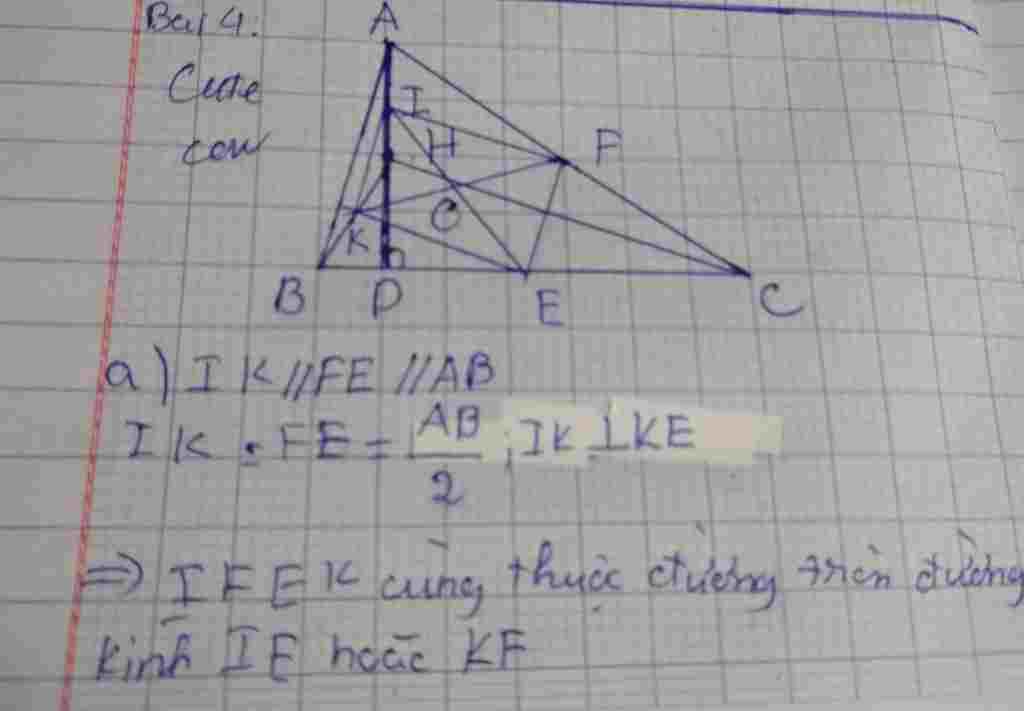 Bài 4.
A
I
H
F
O
K
B D E C
a) IK // FE // AB
IK = FE = AB/2 ; IK ⊥ KE
=> I F E K cùng thuộc đường tròn đường
kính IE hoặc KF